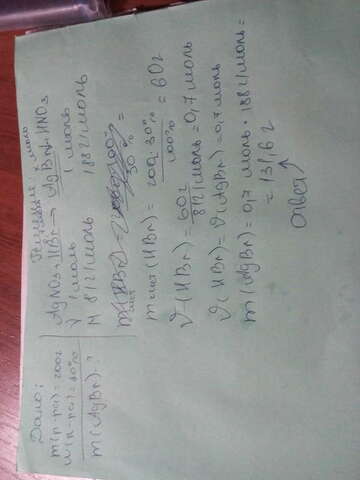 Дано:
m(р-ра) = 200г
W(р-ра) = 30%
m(AgBr) - ?
Решение:
x моль
AgNO3 + HBr → AgBr + HNO3
ν 1 моль 1 моль
M 81г/моль 188г/моль
m(HBr) = 200г · 30% / 100% = 60г
ν(HBr) = 60г / 81г/моль = 0,7 моль
ν(HBr) = ν(AgBr) = 0,7 моль
m(AgBr) = 0,7 моль · 188г/моль =
= 131,6 г
Ответ